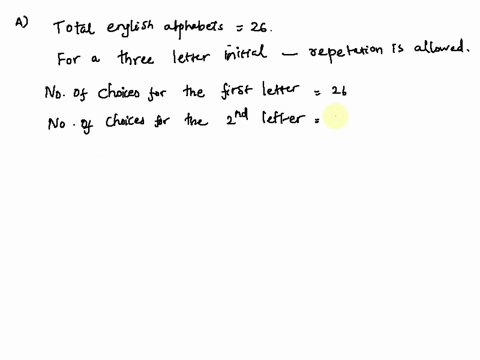 A) Total english alphabets = 26.
For a three letter initial — repetation is allowed.
No. of choices for the first letter = 26
No. of choices for the 2nd letter =